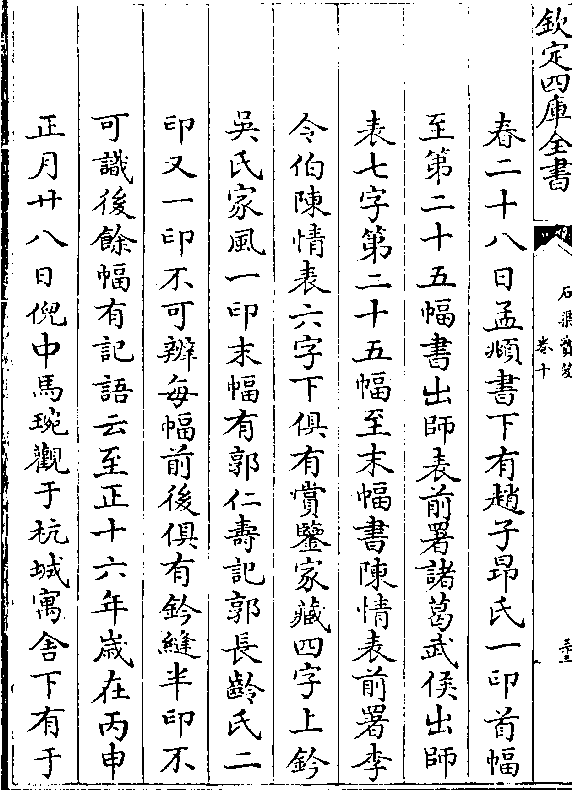 欽定四庫全書
石渠寶笈
卷十
春二十八日孟頫書下有趙子昂氏一印首幅
至第二十五幅書出師表前署諸葛武侯出師
表七字第二十五幅至末幅書陳情表前署李
令伯陳情表六字下俱有賞鑒家藏四字上鈐
吳氏家風一印末幅有郭仁壽記郭長齡氏二
印又一印不可辨每幅前後俱有鈐縫半印不
可識後餘幅有記語云至正十六年歲在丙申
正月廿八日倪中馬琬觀于杭城寓舍下有于